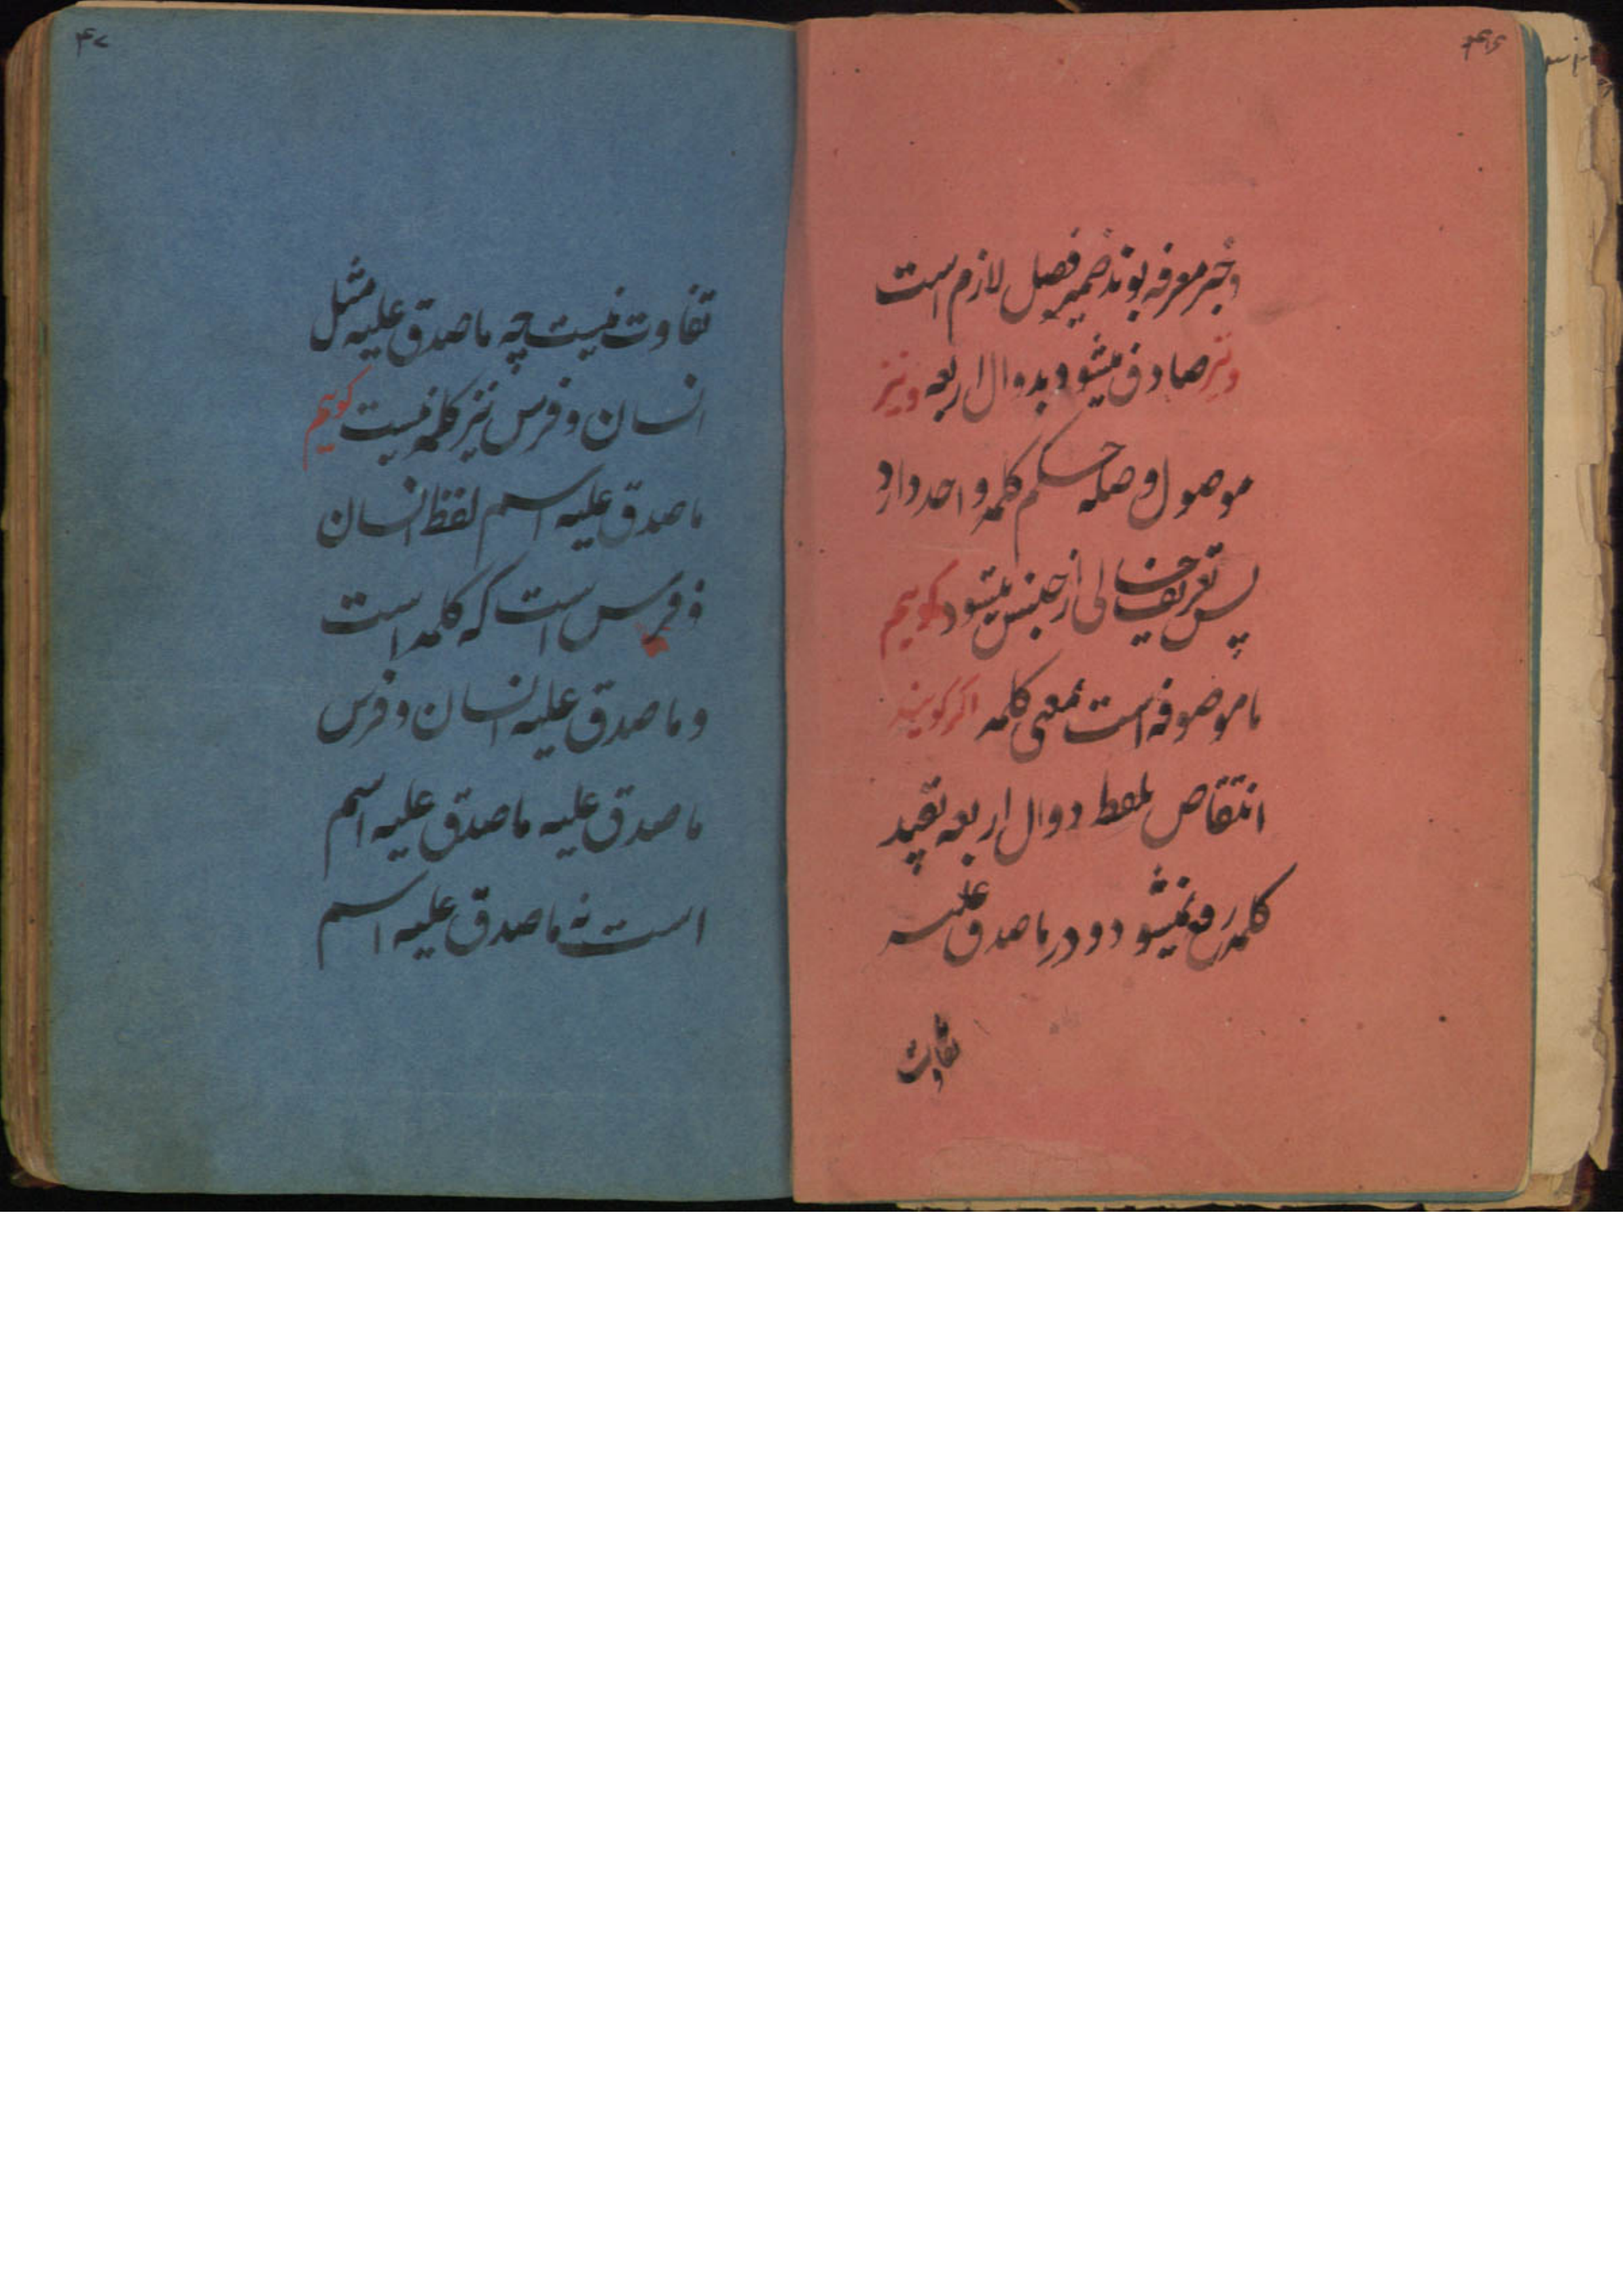 وخبر معرفه بوند ضمیر فصل لازم است
ونیز صادق میشود بدوال اربعه ونیز
موصول وصله حکم کلمه واحد دارد
پس تعریف خالی از جنس میشود کوییم
ما موصوفه است بمعنی کلمه اکر کویند
انتقاص بلفظ دوال اربعه بقید
کلمه رفع نمیشود ودر ماصدق علیه
تفاوت
تفاوت نیست چه ماصدق علیه مثل
انسان وفرس نیز کلمه نیست کوییم
ماصدق علیه اسم لفظ انسان
وفرس است که کلمه است
وماصدق علیه انسان وفرس
ماصدق علیه ماصدق علیه اسم
است نه ماصدق علیه اسم